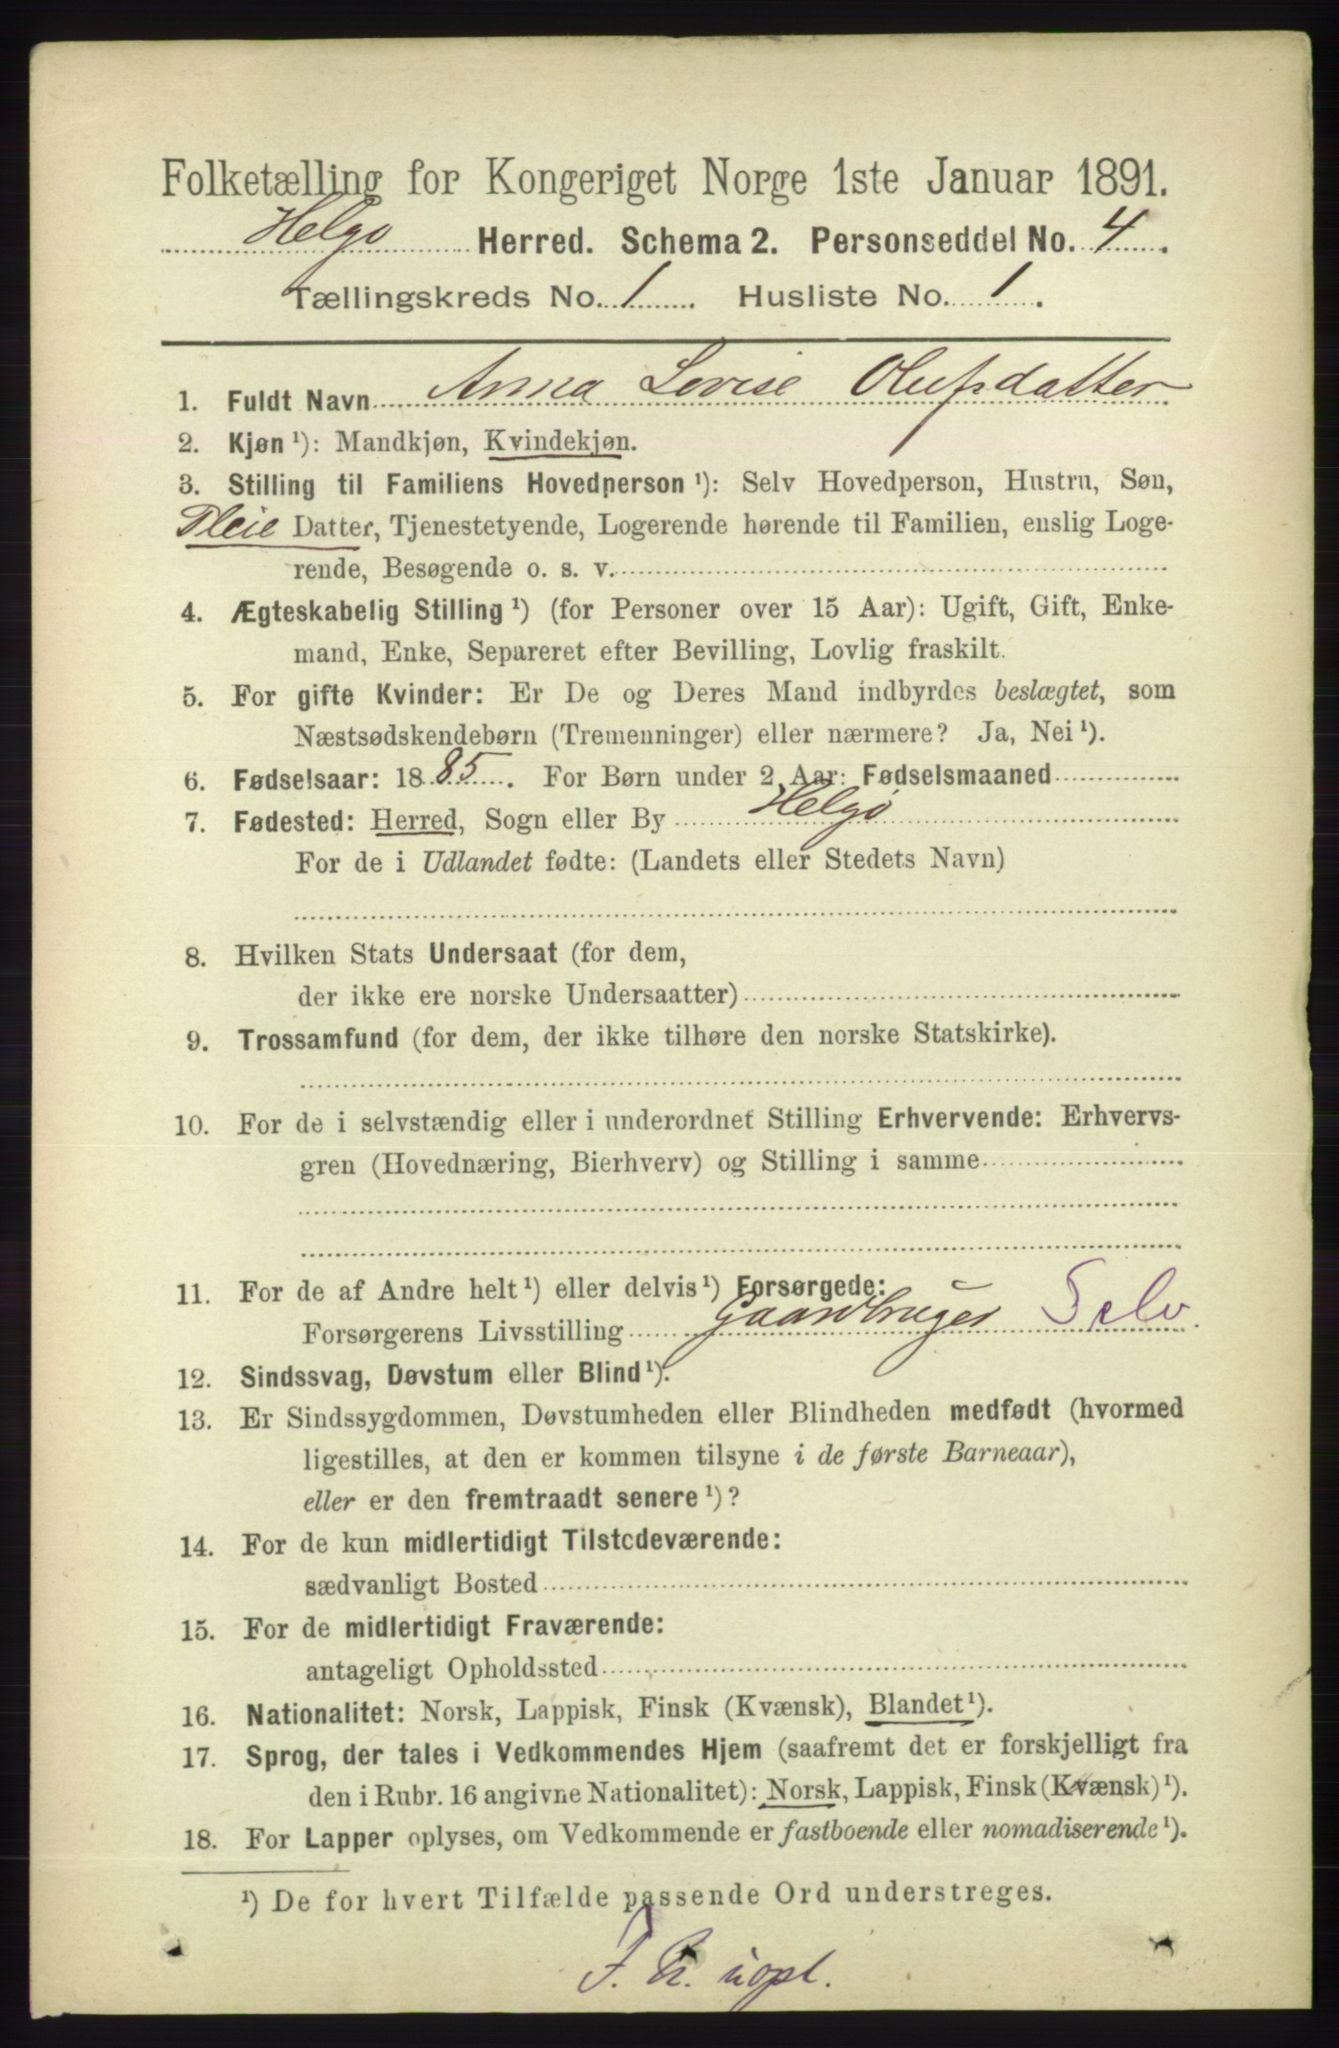 Folketælling for Kongeriget Norge 1ste Januar 1891.
Helgø Herred. Schema 2. Personseddel No. 4.
Tællingskreds No. 1. Husliste No. 1.
1. Fuldt Navn Anna Lovise Olufsdatter
2. Kjøn ¹): Mandkjøn, Kvindekjøn.
3. Stilling til Familiens Hovedperson ¹): Selv Hovedperson, Hustru, Søn,
Pleie Datter, Tjenestetyende, Logerende hørende til Familien, enslig Loge-
rende, Besøgende o. s. v.
4. Ægteskabelig Stilling ¹) (for Personer over 15 Aar): Ugift, Gift, Enke-
mand, Enke, Separeret efter Bevilling, Lovlig fraskilt.
5. For gifte Kvinder: Er De og Deres Mand indbyrdes beslægtet, som
Næstsødskendebørn (Tremenninger) eller nærmere? Ja, Nei ¹).
6. Fødselsaar: 1885. For Børn under 2 Aar: Fødselsmaaned
7. Fødested: Herred, Sogn eller By Helgø
For de i Udlandet fødte: (Landets eller Stedets Navn)
8. Hvilken Stats Undersaat (for dem,
der ikke ere norske Undersaatter)
9. Trossamfund (for dem, der ikke tilhøre den norske Statskirke).
10. For de i selvstændig eller i underordnet Stilling Erhvervende: Erhvervs-
gren (Hovednæring, Bierhverv) og Stilling i samme
11. For de af Andre helt ¹) eller delvis ¹) Forsørgede:
Forsørgerens Livsstilling Gaardbruger Selv.
12. Sindssvag, Døvstum eller Blind ¹).
13. Er Sindssygdommen, Døvstumheden eller Blindheden medfødt (hvormed
ligestilles, at den er kommen tilsyne i de første Barneaar),
eller er den fremtraadt senere ¹)?
14. For de kun midlertidigt Tilstedeværende:
sædvanligt Bosted
15. For de midlertidigt Fraværende:
antageligt Opholdssted
16. Nationalitet: Norsk, Lappisk, Finsk (Kvænsk), Blandet ¹).
17. Sprog, der tales i Vedkommendes Hjem (saafremt det er forskjelligt fra
den i Rubr. 16 angivne Nationalitet): Norsk, Lappisk, Finsk (Kvænsk) ¹).
18. For Lapper oplyses, om Vedkommende er fastboende eller nomadiserende ¹).
¹) De for hvert Tilfælde passende Ord understreges.